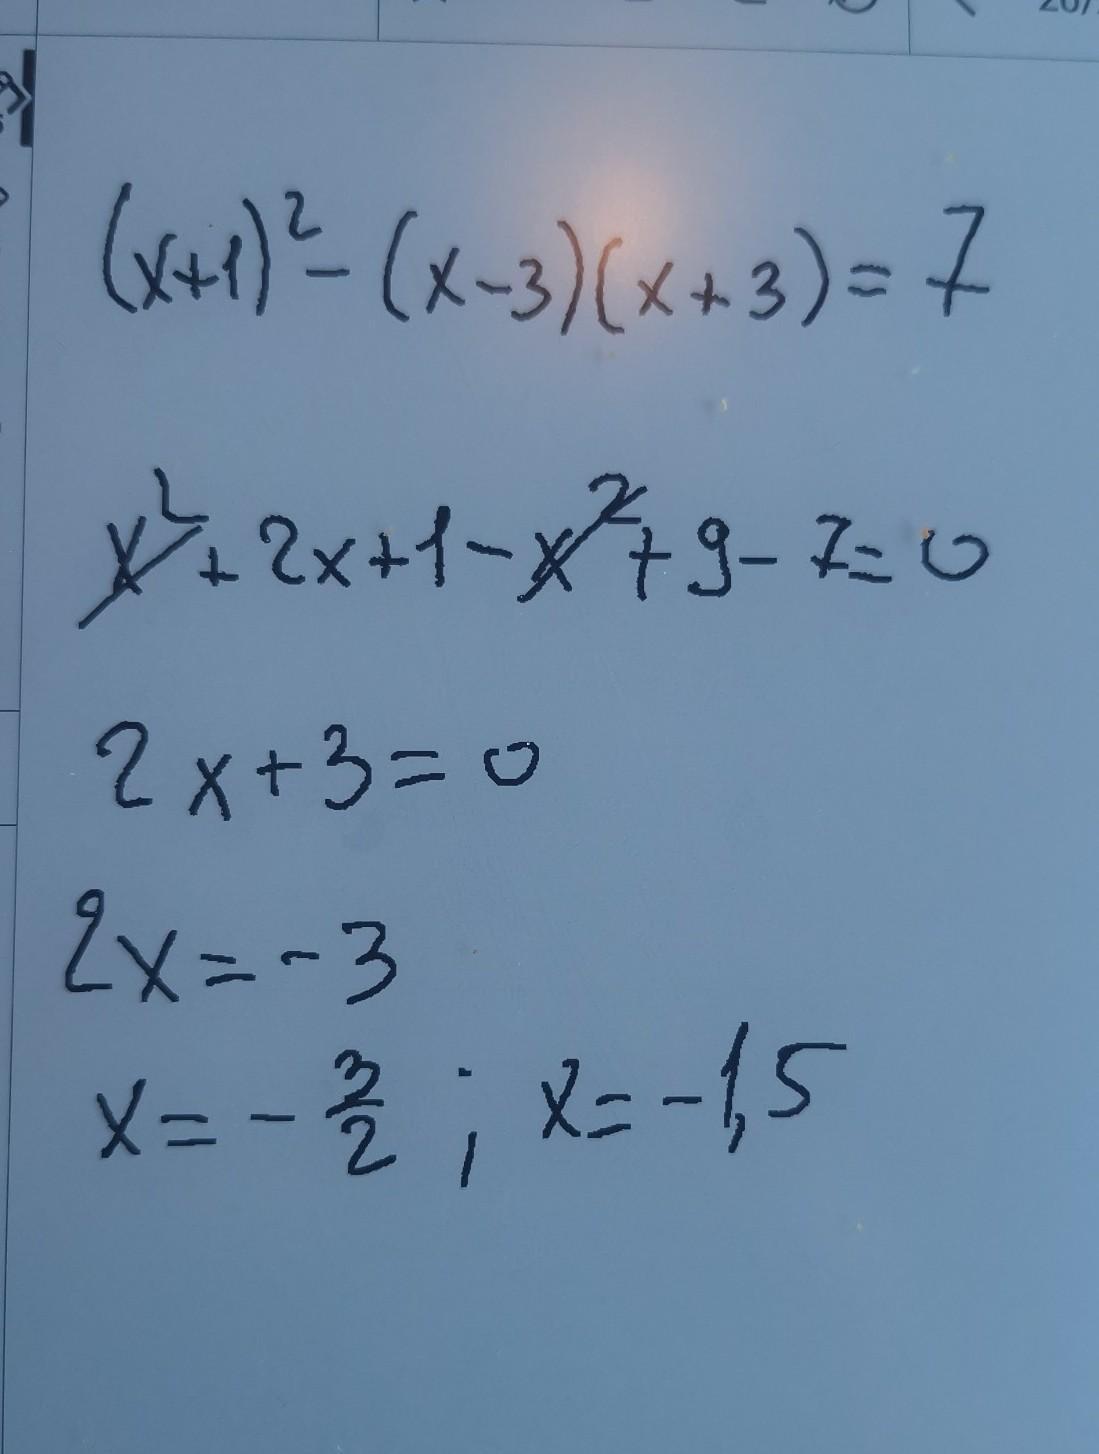 (x+1)² - (x-3)(x+3) = 7
x² + 2x + 1 - x² + 9 - 7 = 0
2x + 3 = 0
2x = - 3
x = - 3/2 ; x = - 1,5